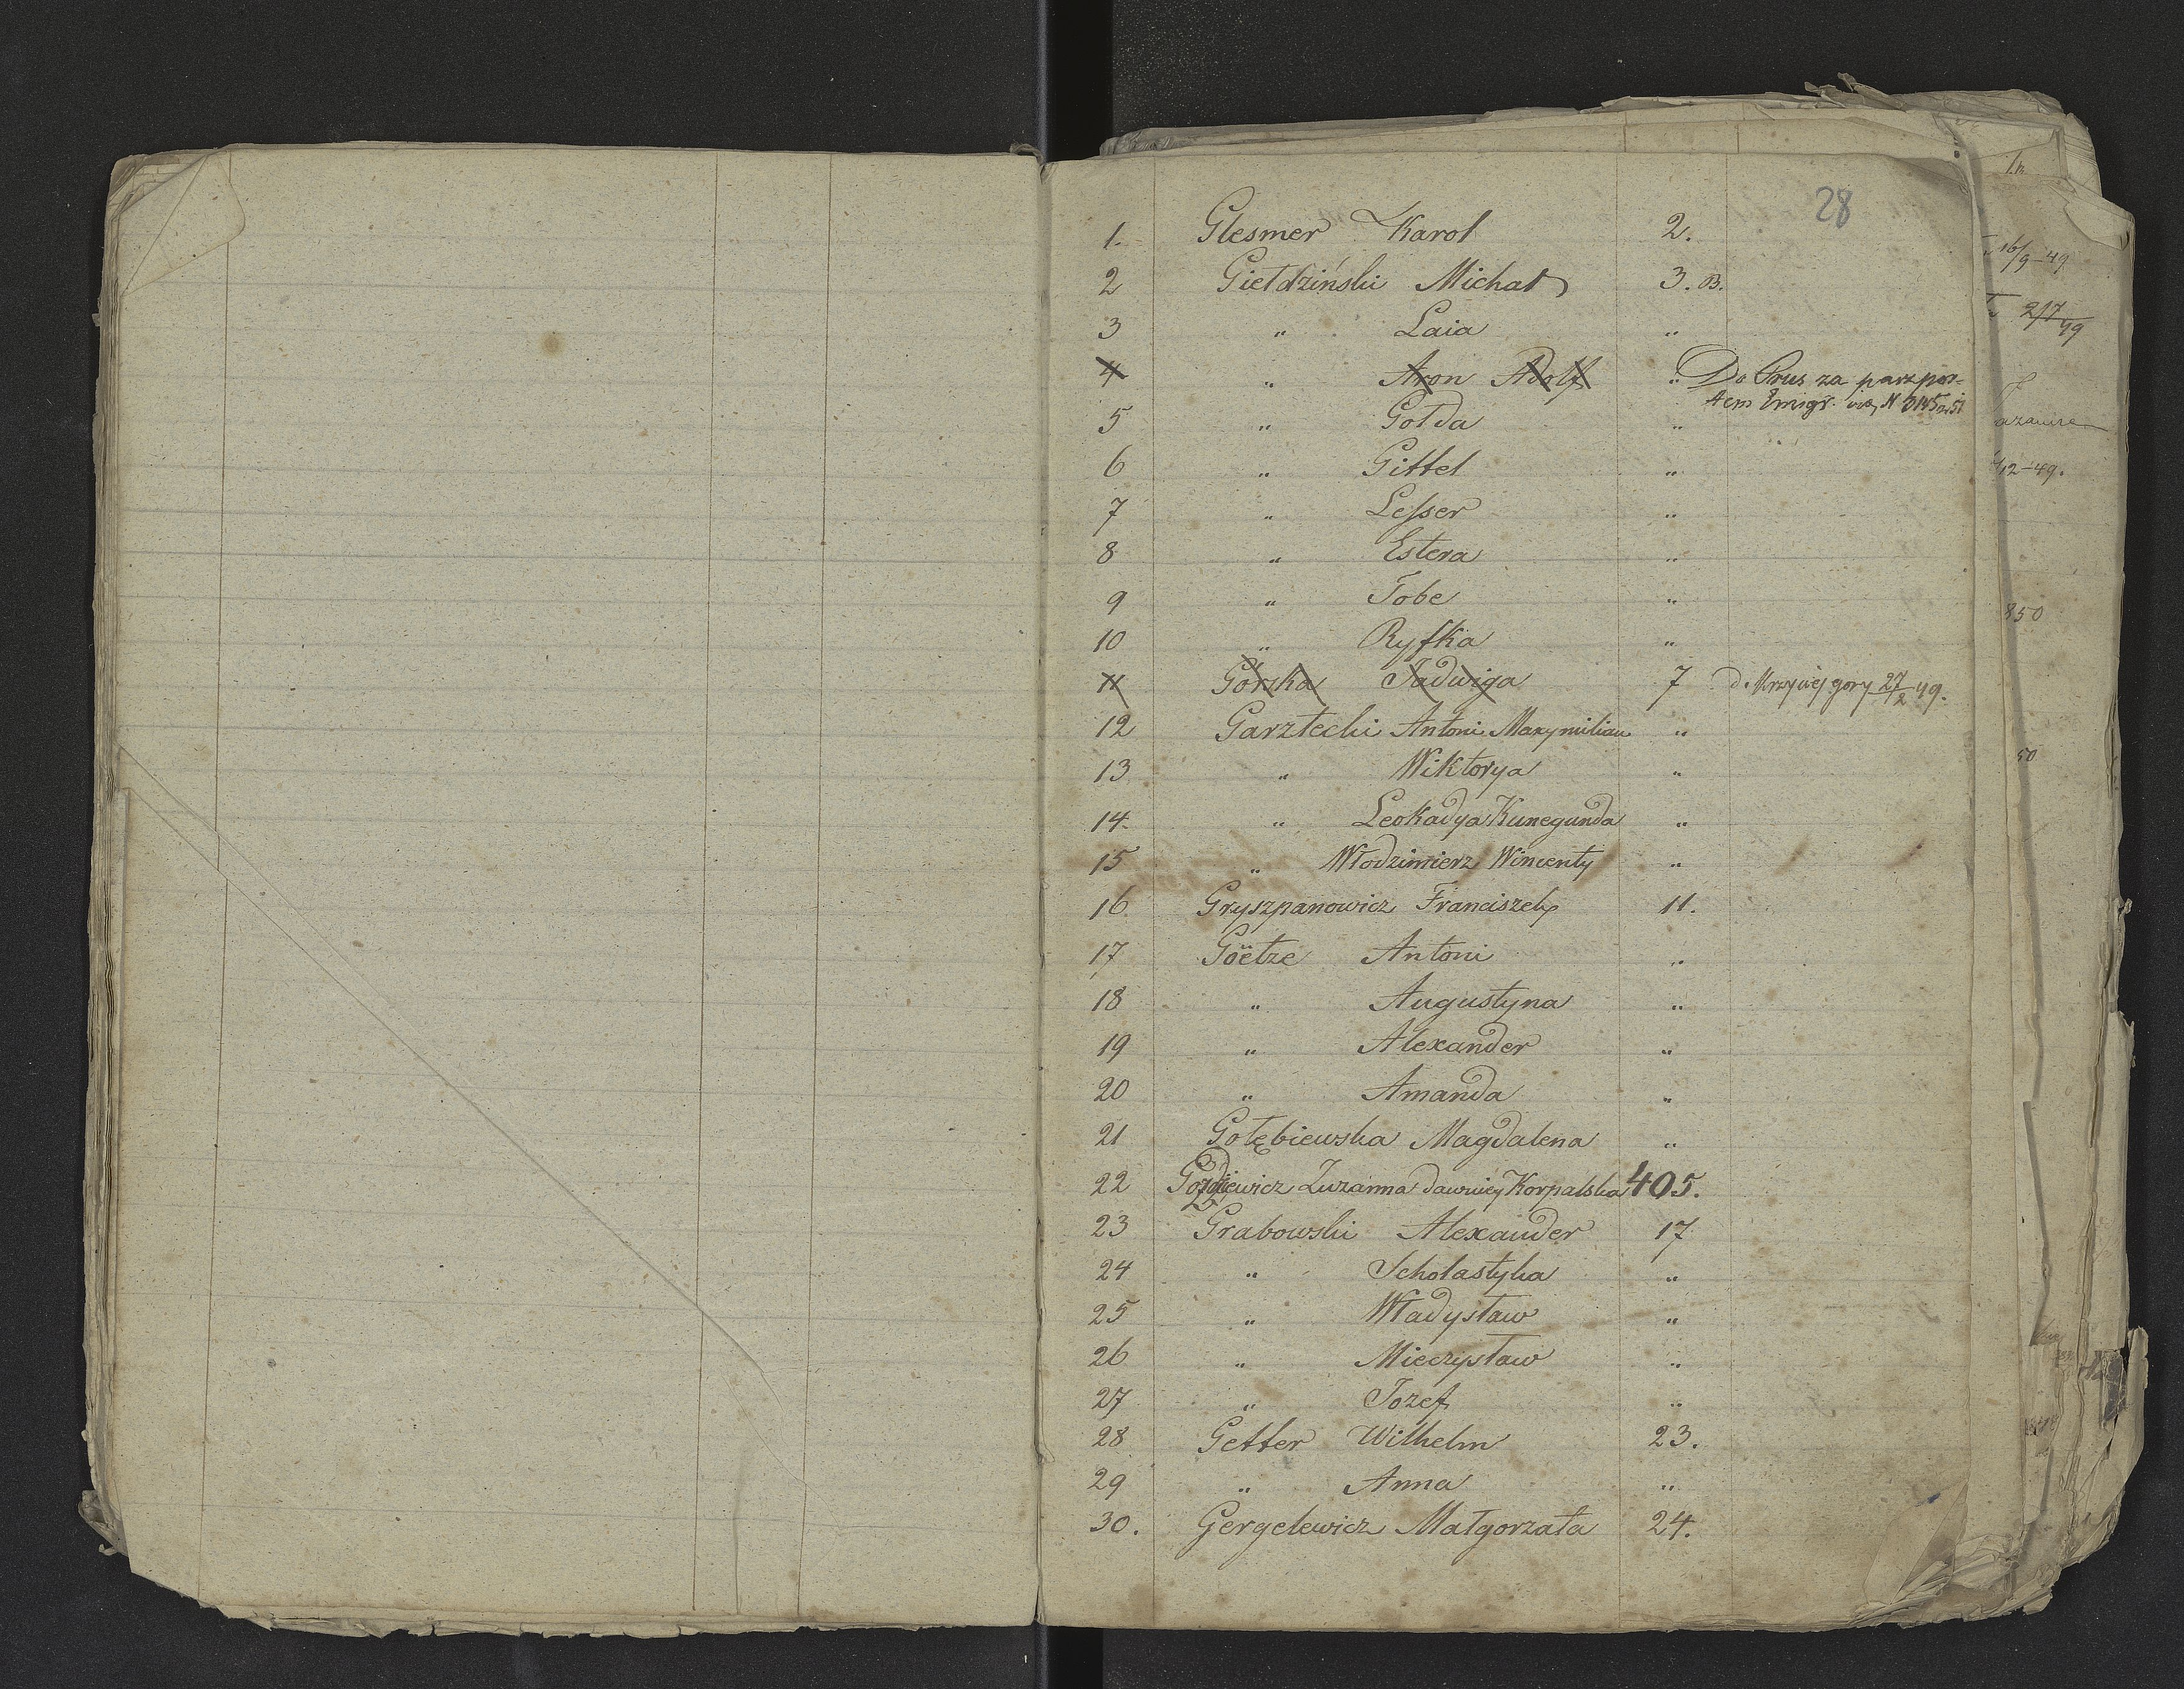 28
1. Glesmer Karol 2.
2 Giełdziński Michał 3. B.
3 " Laia "
4 " Aron Adolf " Do Prus za paszpor=
tem Emigr. N 3145
5 " Gołda "
6 " Gittel "
7 " Lesser "
8 " Estera "
9 " Tobe "
10 " Ryfka "
11 Górska Jadwiga 7 do Krzywej gory 27/2 49.
12 Garztecki Antoni Maxymilian "
13 " Wiktorya "
14. " Leokadya Kunegunda "
15 " Włodzimierz Wincenty "
16 Gryszpanowicz Franciszek 11.
17 Göetze Antoni "
18 " Augustyna "
19 " Alexander "
20 " Amanda "
21 Gołębiewska Magdalena "
22 Zuzanna dawniej Korpalska 405.
23 Grabowski Alexander 17
24 " Scholastyka "
25 " Władysław "
26 " Mieczysław "
27 " Jozef "
28 Getter Wilhelm 23.
29 " Anna "
30. Gergelewicz Małgorzata 24.
16/9-49
2/7 49
12-49.
850
50